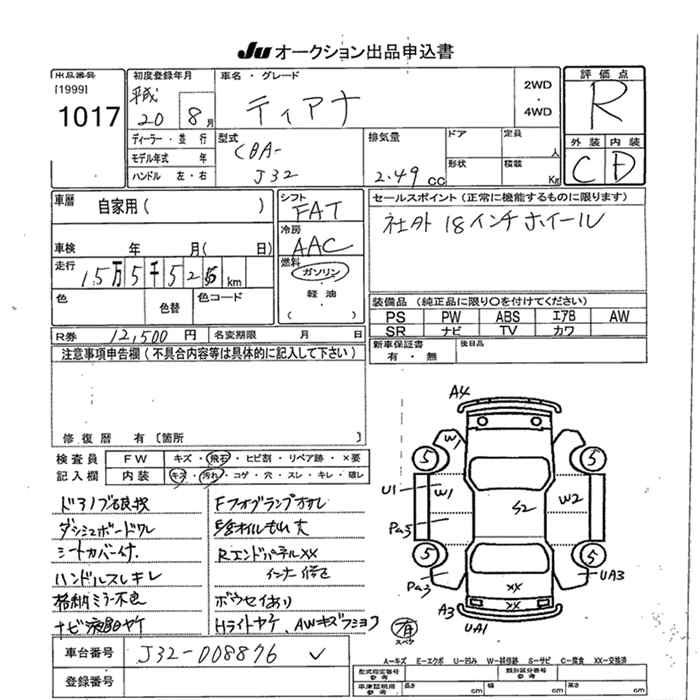 Ju オークション出品申込書
出品番号
[1999]
1017
初度登録年月
平成
20 8月
車名・グレード
ティアナ
2WD
・
4WD
評価点
R
外装 内装
C D
ディーラー・並行
モデル年式 年
ハンドル 左・右
型式
CBA-
J32
排気量
2.49 cc
ドア
定員 人
形状
積載 Kg
車歴
自家用( )
車検 年 月( 日)
走行
km
色
色替
色コード
シフト
FAT
冷房
AAC
燃料
ガソリン
・
軽油
( )
セールスポイント(正常に機能するものに限ります)
社外 18インチホイール
装備品(純正品に限り○を付けてください)
PS PW ABS エアB AW
SR ナビ TV カワ
新車保証書
有・無
後日品
R券 12,500 円
名変期限 月 日
注意事項申告欄(不具合内容等は具体的に記入して下さい)
修復歴 有〔箇所 〕
検査員 FW キズ・飛石・ヒビ割・リペア跡・×要
記入欄 内装 キズ・汚れ・コゲ・穴・スレ・キレ・破レ
ダシュボードワレ
シートカバー付.
ハンドルスレキレ
格納ミラー不良
ナビ液晶ヤケ
Fフォグランプ
RエンドパネルXX
インナー
ボウセイあり
Hライトヤケ、AWキズ
A4
W1
5
5
U1
W1
S2
W2
Pa5
5
5
Pa3
UA3
XX
XX
A3
UA1
有
スペタ
車台番号 J32-008876 ✓
登録番号
A-キズ E-エクボ U-凹み W-補修跡 S-サビ C-腐食 XX-交換済
型式指定番号
参考
類別区分番号
参考
車庫証明用
参考
長さ cm 幅 cm 高さ cm